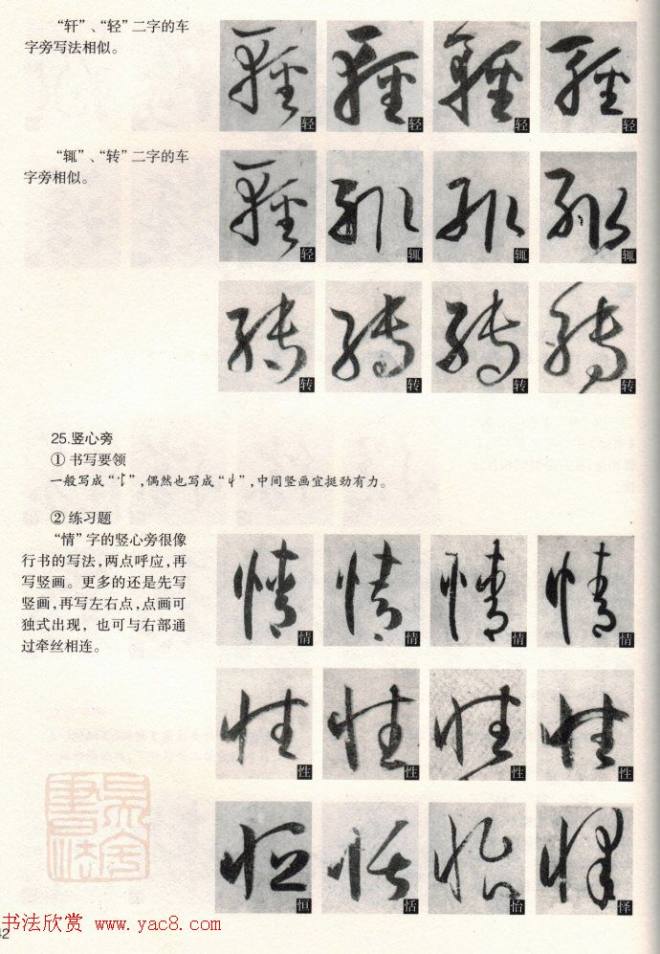 “轩”、“轻”二字的车
字旁写法相似。
轻 轻 轻 轻
“辄”、“转”二字的车
字旁相似。
轻 辄 辄 辄
转 转 转 转
25.竖心旁
① 书写要领
一般写成“忄”,偶然也写成“”,中间竖画宜挺劲有力。
② 练习题
“情”字的竖心旁很像
行书的写法,两点呼应,再
写竖画。更多的还是先写
竖画,再写左右点,点画可
独式出现,也可与右部通
过牵丝相连。
情 情 情 情
性 性 性 性
恒 恬 怡 怿
书法欣赏 www.yac8.com
42